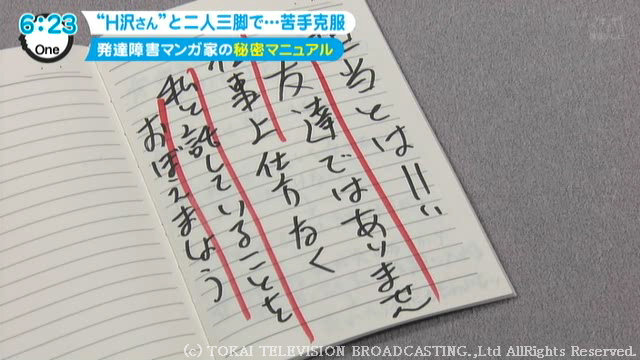 6:23
One
“H沢さん”と二人三脚で…苦手克服
発達障害マンガ家の秘密マニュアル
担当とは!!
友達ではありません
仕事上仕方なく
私と話していることを
おぼえましょう
(C) TOKAI TELEVISION BROADCASTING.,Ltd AllRights Reserved.